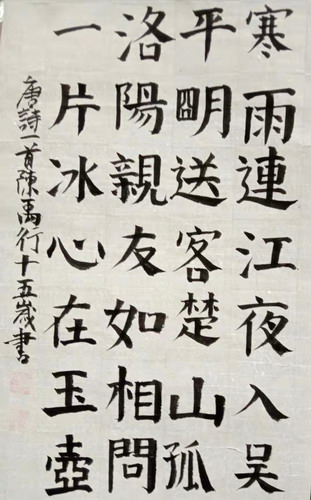 寒雨連江夜入吴
平明送客楚山孤
洛陽親友如相問
一片冰心在玉壺
唐詩一首陳禹行十五歲書